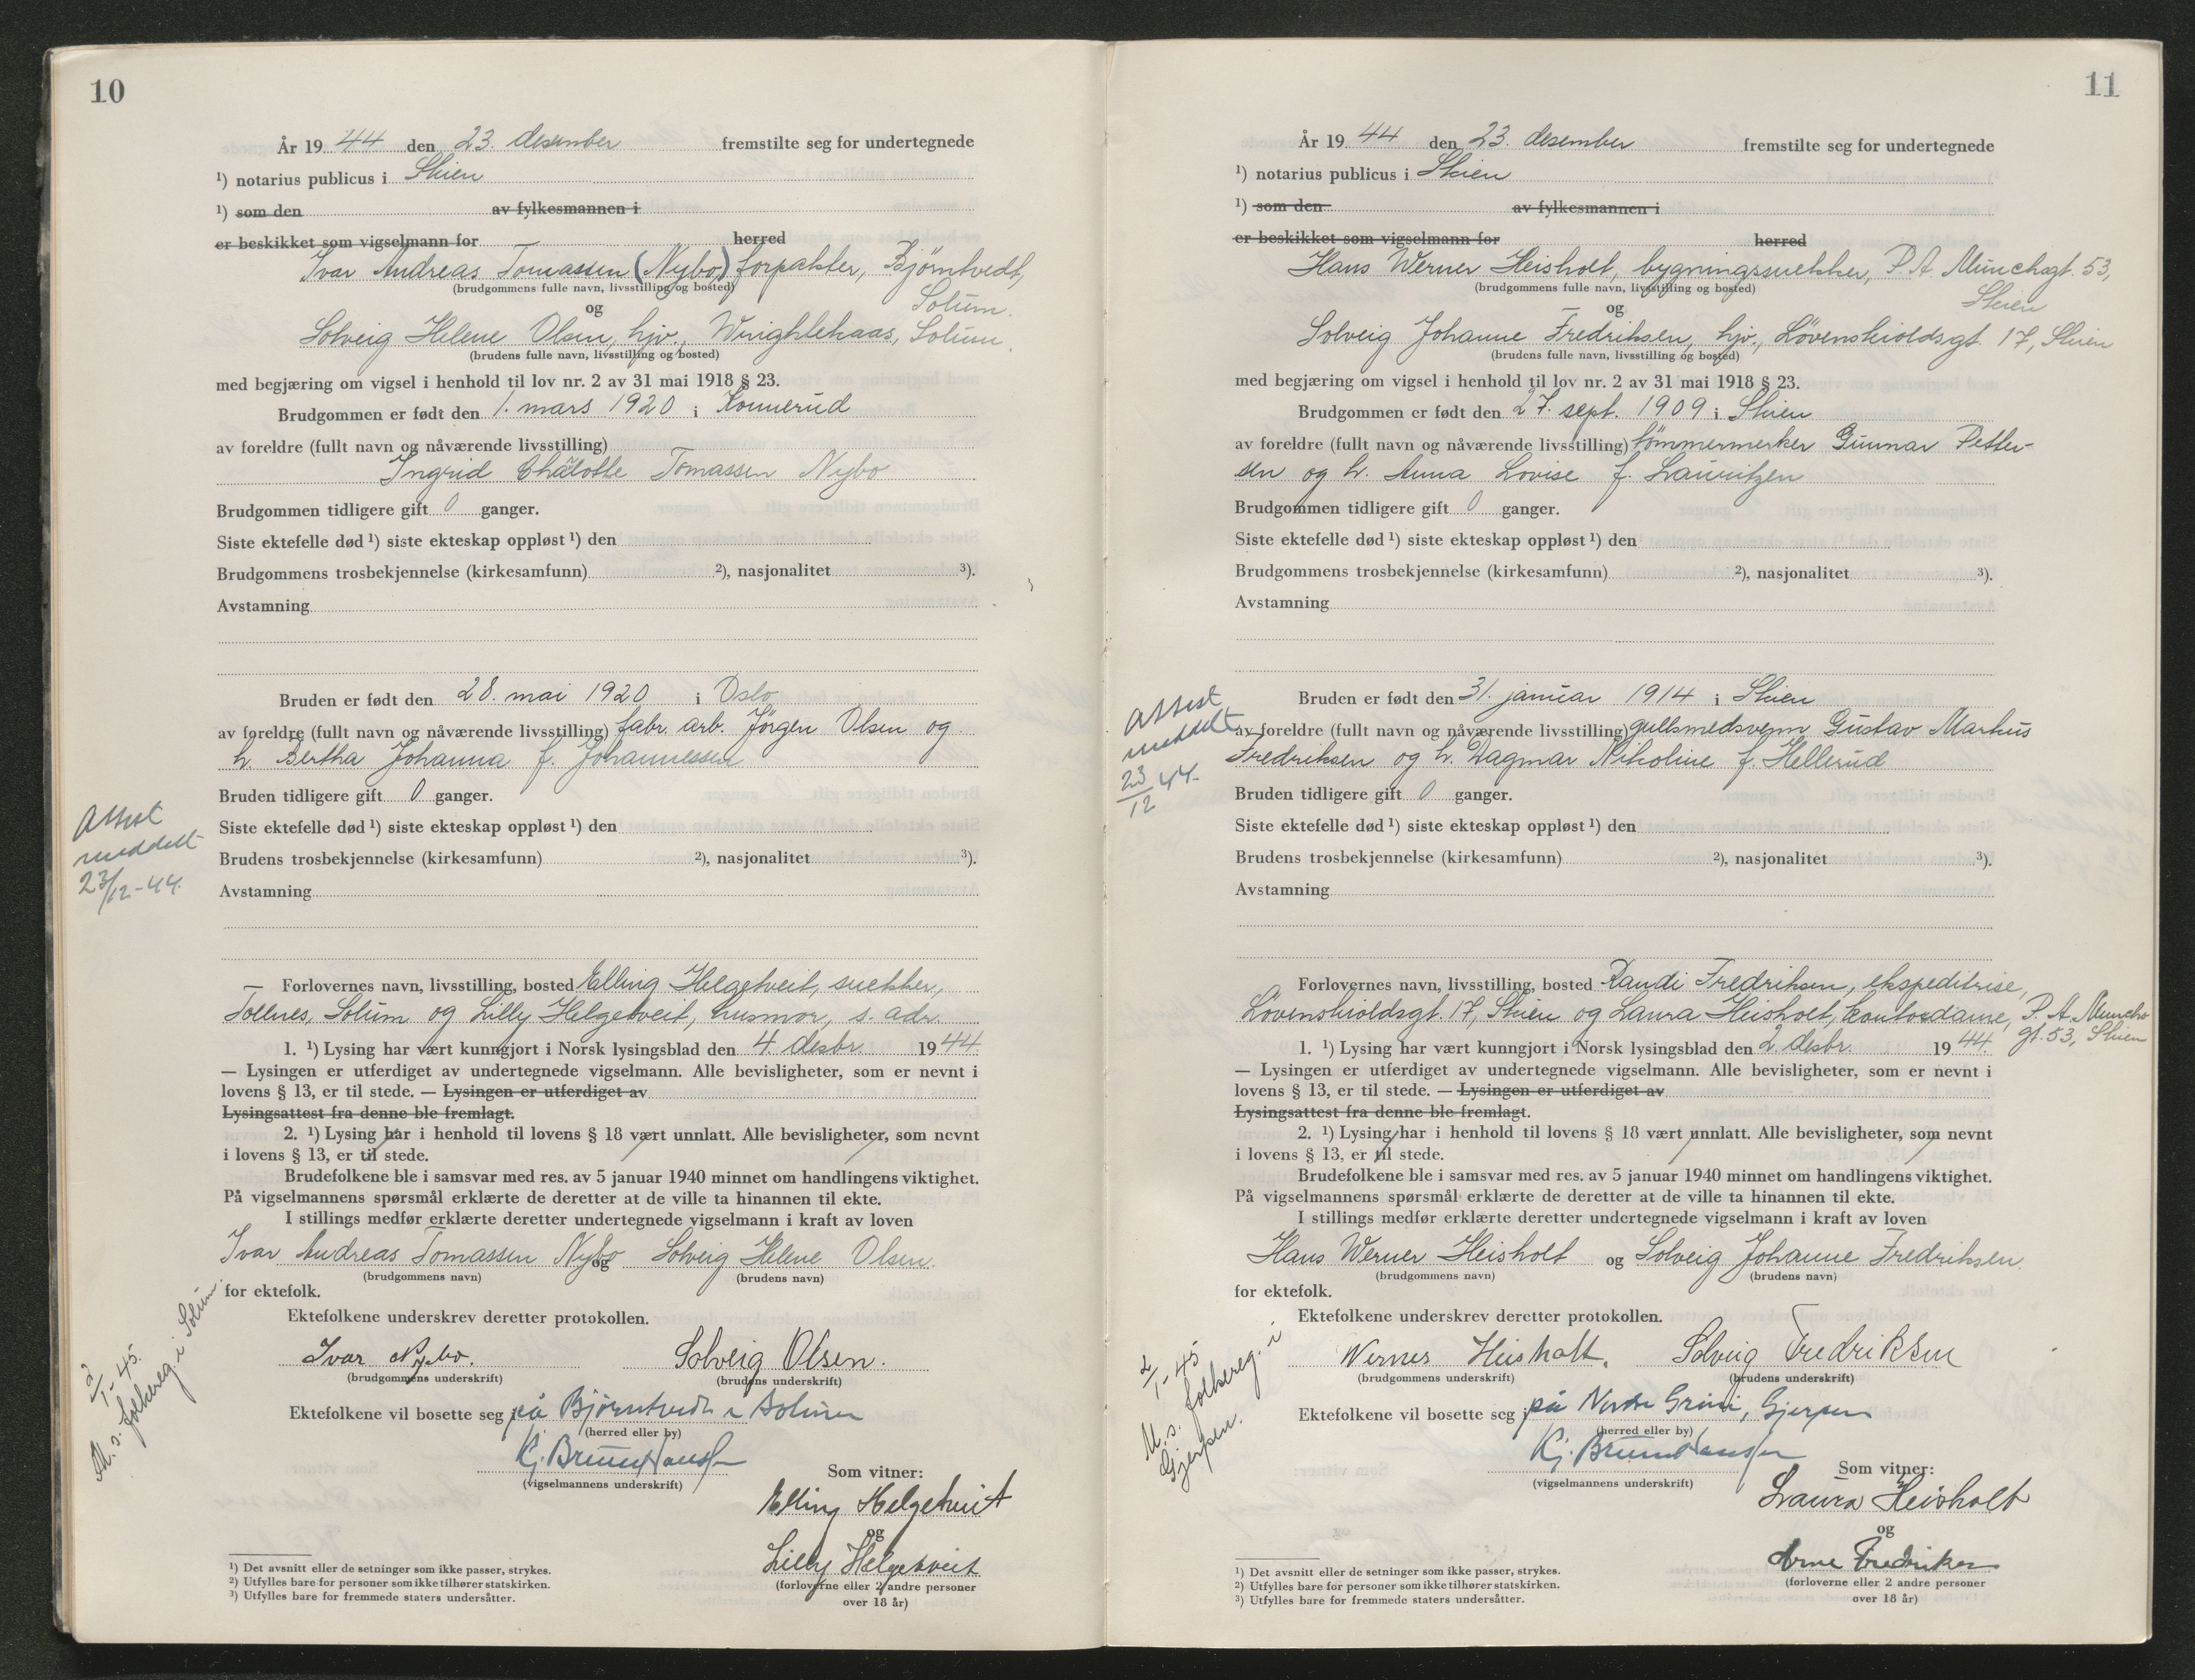 10
År 19 44 den 23. desember fremstilte seg for undertegnede
¹) notarius publicus i Skien
¹) som den av fylkesmannen i
er beskikket som vigselmann for herred
Ivar Andreas Tomassen (Nybo) forpakter, Bjørntvedt,
(brudgommens fulle navn, livsstilling og bosted)
Solum.
og
Solveig Helene Olsen, hjv., Wrighlehaas, Solum.
(brudens fulle navn, livsstilling og bosted)
med begjæring om vigsel i henhold til lov nr. 2 av 31 mai 1918 § 23.
Brudgommen er født den 1. mars 1920 i Konnerud
av foreldre (fullt navn og nåværende livsstilling)
Ingrid Chalotte Tomassen Nybo
Brudgommen tidligere gift 0 ganger.
Siste ektefelle død ¹) siste ekteskap oppløst ¹) den
Brudgommens trosbekjennelse (kirkesamfunn) ²), nasjonalitet ³).
Avstamning
Bruden er født den 28. mai 1920 i Oslo
av foreldre (fullt navn og nåværende livsstilling) fabr. arb. Jørgen Olsen og
h. Bertha Johanna f. Johannessen
Bruden tidligere gift 0 ganger.
Siste ektefelle død ¹) siste ekteskap oppløst ¹) den
Brudens trosbekjennelse (kirkesamfunn) ²), nasjonalitet ³).
Avstamning
Attest
meddelt
23/12-44.
Forlovernes navn, livsstilling, bosted Elling Helgetveit, snekker,
Tollnes, Solum og Lilly Helgetveit, husmor, s. adr.
1. ¹) Lysing har vært kunngjort i Norsk lysingsblad den 4. desbr. 19 44.
— Lysingen er utferdiget av undertegnede vigselmann. Alle bevisligheter, som er nevnt i
lovens § 13, er til stede. — Lysingen er utferdiget av
Lysingsattest fra denne ble fremlagt.
2. ¹) Lysing har i henhold til lovens § 18 vært unnlatt. Alle bevisligheter, som nevnt
i lovens § 13, er til stede.
Brudefolkene ble i samsvar med res. av 5 januar 1940 minnet om handlingens viktighet.
På vigselmannens spørsmål erklærte de deretter at de ville ta hinannen til ekte.
I stillings medfør erklærte deretter undertegnede vigselmann i kraft av loven
Ivar Andreas Tomassen Nybo og Solveig Helene Olsen.
(brudgommens navn) (brudens navn)
for ektefolk.
Ektefolkene underskrev deretter protokollen.
Ivar Nybo. Solveig Olsen.
(brudgommens underskrift) (brudens underskrift)
Ektefolkene vil bosette seg i på Bjørntvedt i Solum
(herred eller by)
Kj. Bruun Hansen
(vigselmannens underskrift)
Som vitner:
Elling Helgetveit
og
Lilly Helgetveit
(forloverne eller 2 andre personer
over 18 år)
2/1-45.
M. s. folkereg. i Solum.
¹) Det avsnitt eller de setninger som ikke passer, strykes.
²) Utfylles bare for personer som ikke tilhører statskirken.
³) Utfylles bare for fremmede staters undersåtter.
11
År 19 44 den 23. desember fremstilte seg for undertegnede
¹) notarius publicus i Skien
¹) som den av fylkesmannen i
er beskikket som vigselmann for herred
Hans Werner Heisholt, bygningssnekker, P. A. Munchsgt. 53,
(brudgommens fulle navn, livsstilling og bosted)
Skien
og
Solveig Johanne Fredriksen, hjv., Løvenskioldsgt. 17, Skien
(brudens fulle navn, livsstilling og bosted)
med begjæring om vigsel i henhold til lov nr. 2 av 31 mai 1918 § 23.
Brudgommen er født den 27. sept. 1909 i Skien
av foreldre (fullt navn og nåværende livsstilling) tømmermerker Gunnar Petter-
sen og h. Anna Lovise f. Lauritzen
Brudgommen tidligere gift 0 ganger.
Siste ektefelle død ¹) siste ekteskap oppløst ¹) den
Brudgommens trosbekjennelse (kirkesamfunn) ²), nasjonalitet ³).
Avstamning
Bruden er født den 31. januar 1914 i Skien
av foreldre (fullt navn og nåværende livsstilling) gullsmedsvenn Gustav Markus
Fredriksen og h. Dagmar Nikoline f. Hellerud
Attest
meddelt
23/12 44.
Bruden tidligere gift 0 ganger.
Siste ektefelle død ¹) siste ekteskap oppløst ¹) den
Brudens trosbekjennelse (kirkesamfunn) ²), nasjonalitet ³).
Avstamning
Forlovernes navn, livsstilling, bosted Randi Fredriksen, ekspeditrise,
Løvenskioldsgt. 17, Skien og Laura Heisholt, kontordame, P. A. Munchs
gt. 53, Skien
1. ¹) Lysing har vært kunngjort i Norsk lysingsblad den 2. desbr. 19 44.
— Lysingen er utferdiget av undertegnede vigselmann. Alle bevisligheter, som er nevnt i
lovens § 13, er til stede. — Lysingen er utferdiget av
Lysingsattest fra denne ble fremlagt.
2. ¹) Lysing har i henhold til lovens § 18 vært unnlatt. Alle bevisligheter, som nevnt
i lovens § 13, er til stede.
Brudefolkene ble i samsvar med res. av 5 januar 1940 minnet om handlingens viktighet.
På vigselmannens spørsmål erklærte de deretter at de ville ta hinannen til ekte.
I stillings medfør erklærte deretter undertegnede vigselmann i kraft av loven
Hans Werner Heisholt og Solveig Johanne Fredriksen.
(brudgommens navn) (brudens navn)
for ektefolk.
Ektefolkene underskrev deretter protokollen.
Werner Heisholt. Solveig Fredriksen
(brudgommens underskrift) (brudens underskrift)
Ektefolkene vil bosette seg i på Nordre Grini, Gjerpen
(herred eller by)
Kj. Bruun Hansen
(vigselmannens underskrift)
Som vitner:
Laura Heisholt
og
Arne Fredriksen
(forloverne eller 2 andre personer
over 18 år)
2/1-45
M. s. folkereg. i
Gjerpen.
¹) Det avsnitt eller de setninger som ikke passer, strykes.
²) Utfylles bare for personer som ikke tilhører statskirken.
³) Utfylles bare for fremmede staters undersåtter.